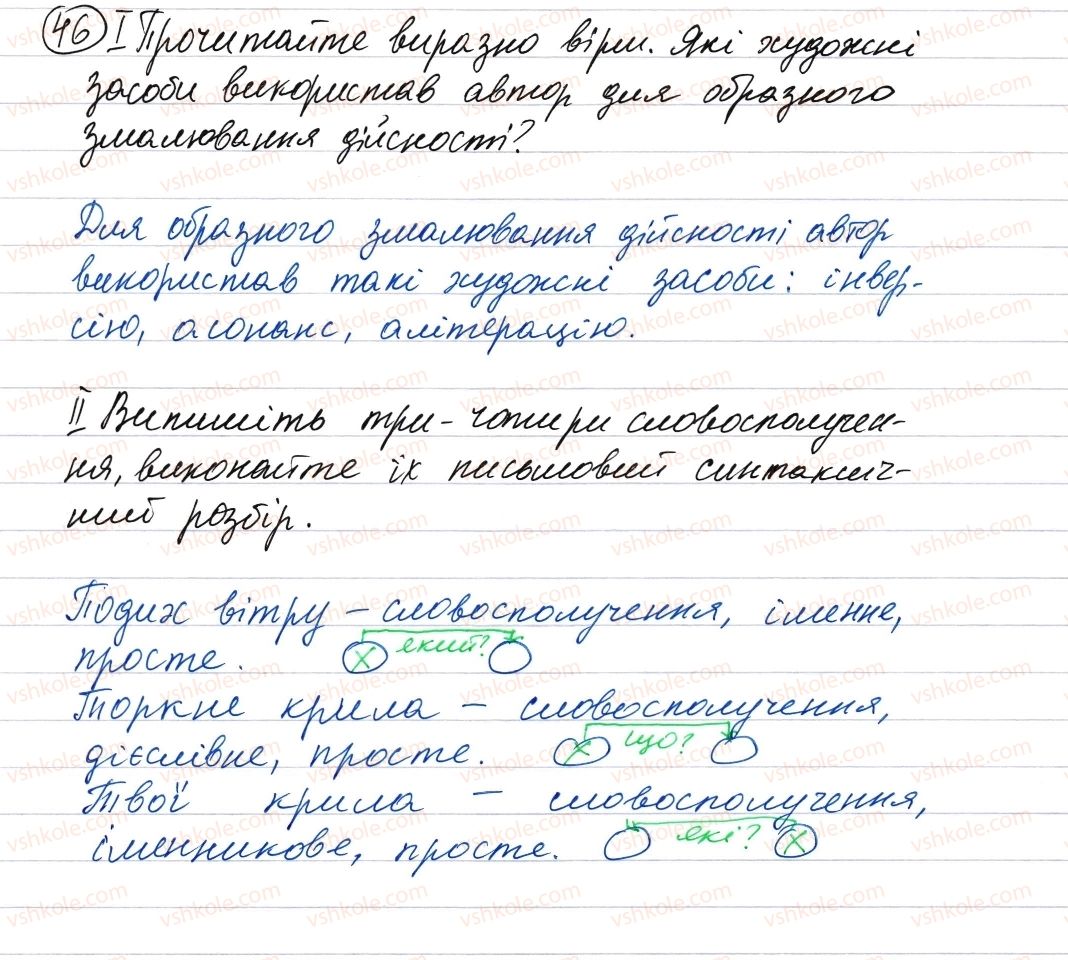 46 I Прочитайте виразно вірш. Які художні
засоби використав автор для образного
змалювання дійсності?
Для образного змалювання дійсності автор
використав такі художні засоби: інвер-
сію, асонанс, алітерацію.
II Випишіть три-чотири словосполучен-
ня, виконайте їх письмовий синтаксич-
ний розбір.
Подих вітру – словосполучення, іменне,
просте. х який?
Торкне крила – словосполучення,
дієслівне, просте. х що?
Твої крила – словосполучення,
іменникове, просте. які? х